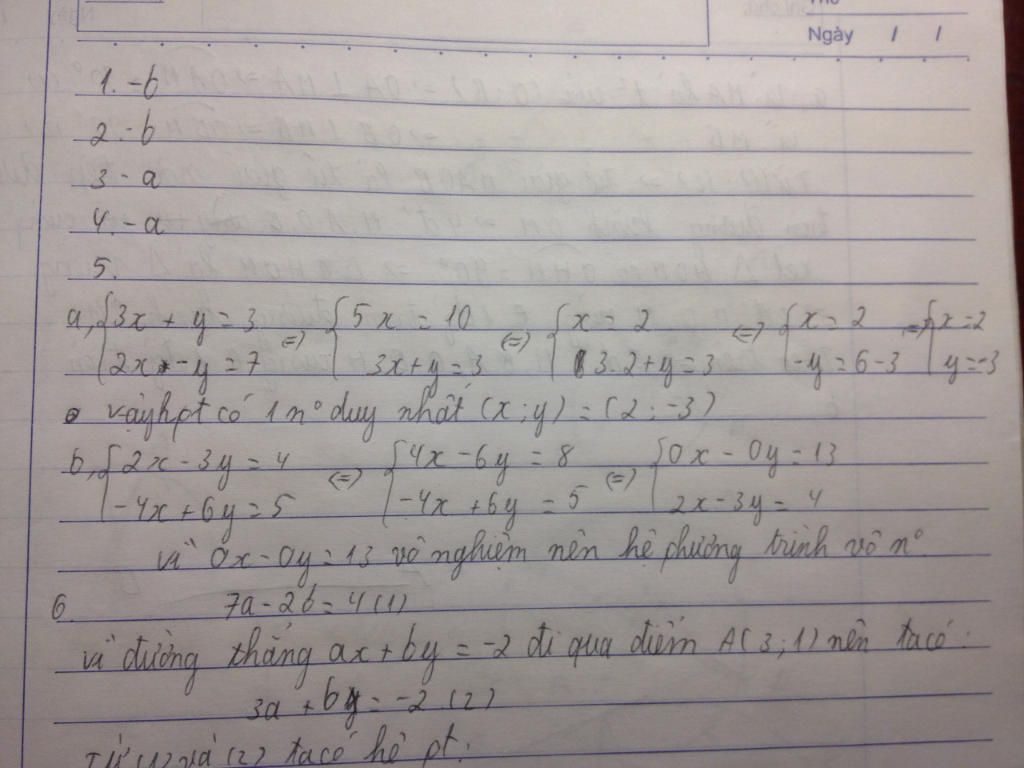 Ngày / /
1. - b
2. - b
3 - a
4. - a
5.
a, {3x + y = 3 ; 2x - y = 7 <=> {5x = 10 ; 3x + y = 3 <=> {x = 2 ; 3.2 + y = 3 <=> {x = 2 ; -y = 6 - 3 <=> {x = 2 ; y = -3
vậy hpt có 1 nº duy nhất (x ; y) = (2 ; -3)
b, {2x - 3y = 4 ; -4x + 6y = 5 <=> {4x - 6y = 8 ; -4x + 6y = 5 <=> {0x - 0y = 13 ; 2x - 3y = 4
vì 0x - 0y = 13 vô nghiệm nên hệ phương trình vô nº.
6. 7a - 2b = 4 (1)
vì đường thẳng ax + by = -2 đi qua điểm A(3 ; 1) nên ta có :
3a + b = -2 (2)
Từ (1) và (2) ta có hệ pt :